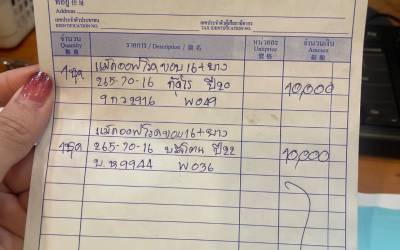 ที่อยู่ 住址
Address
เลขประจำตัวประชาชน
IDENTIFICATION NO.
เลขประจำตัวผู้เสียภาษีอากร
TAX IDENTIFICATION NO.
จำนวน รายการ / Description / 貨名 หน่วยละ จำนวนเงิน
Quantity Unitprice Amount
數量 價格 銀額
1ชุด แม็กออฟโรดขอบ16+ยาง 10,000
265-70-16 ปี20
9กว2916 พ049
แม็กออฟโรดขอบ16+ยาง
1ชุด 265-70-16 ปี22 10,000
บห9944 พ036